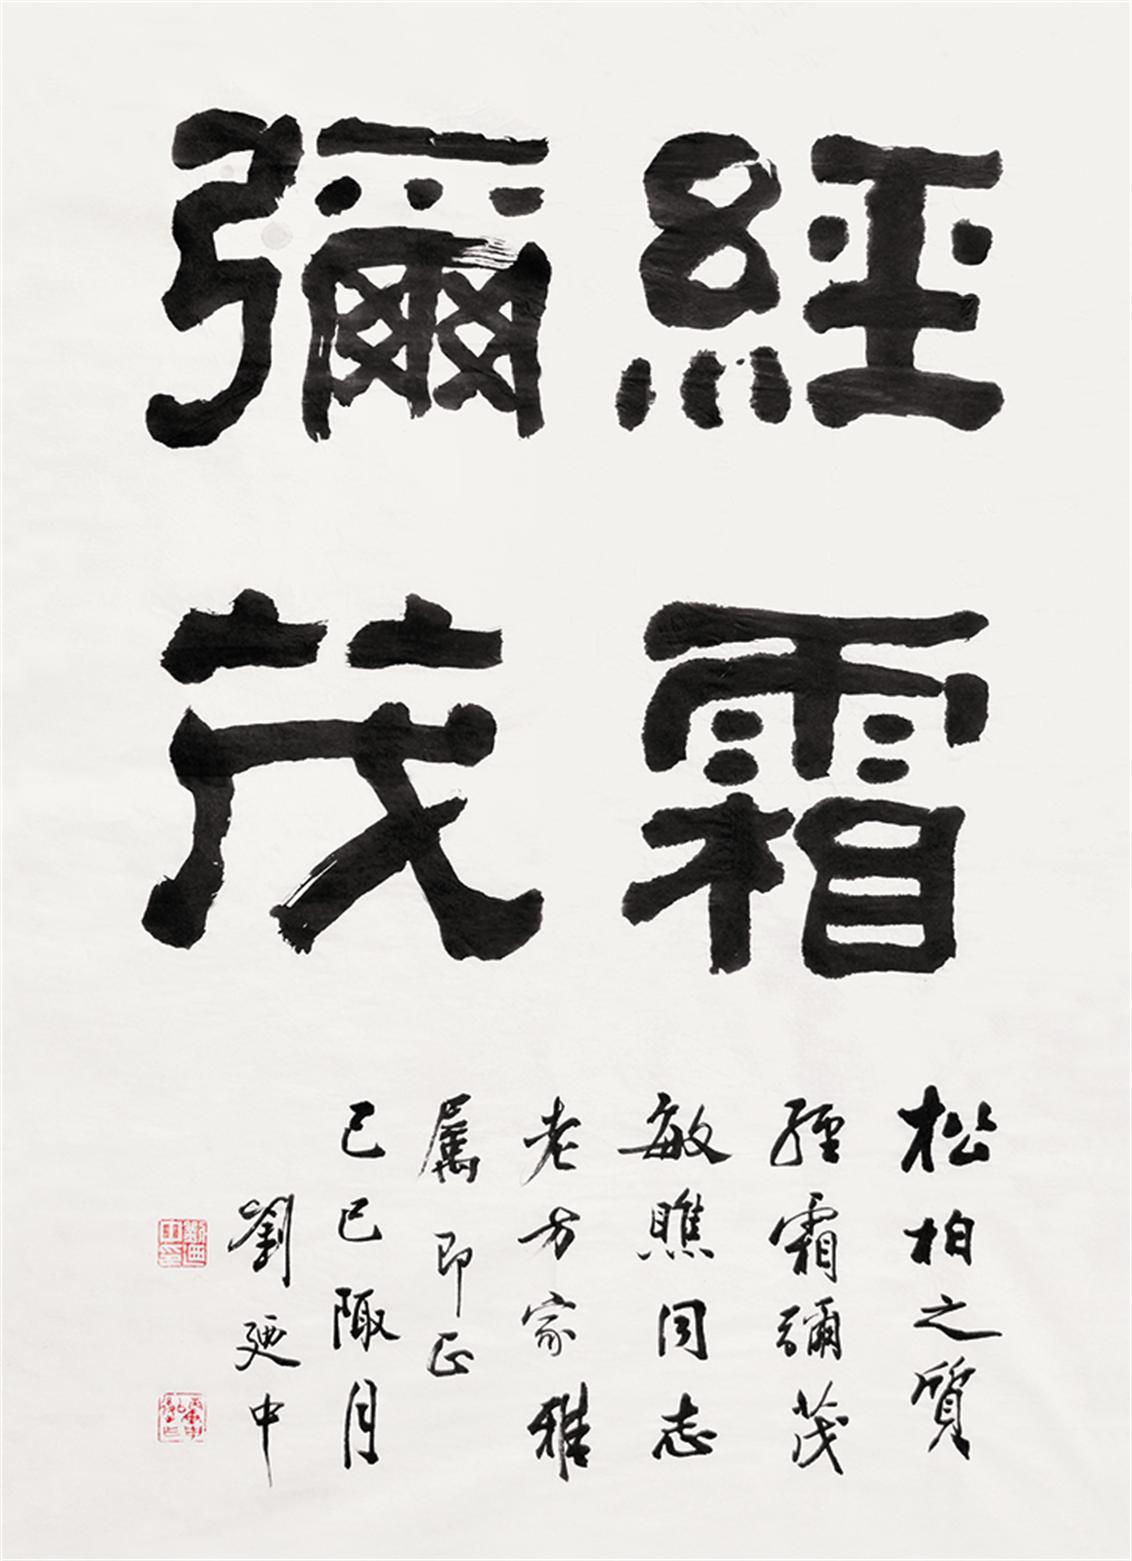 經霜
彌茂
松柏之質
經霜彌茂
敏瞧同志
老方家雅
屬 即正
己巳陬月
劉廼中
劉廼中印